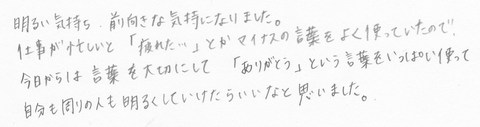 明るい気持ち、前向きな気持になりました。
仕事が忙しいと「疲れた…」とかマイナスの言葉をよく使っていたので、
今日からは言葉を大切にして「ありがとう」という言葉をいっぱい使って
自分も周りの人も明るくしていけたらいいなと思いました。